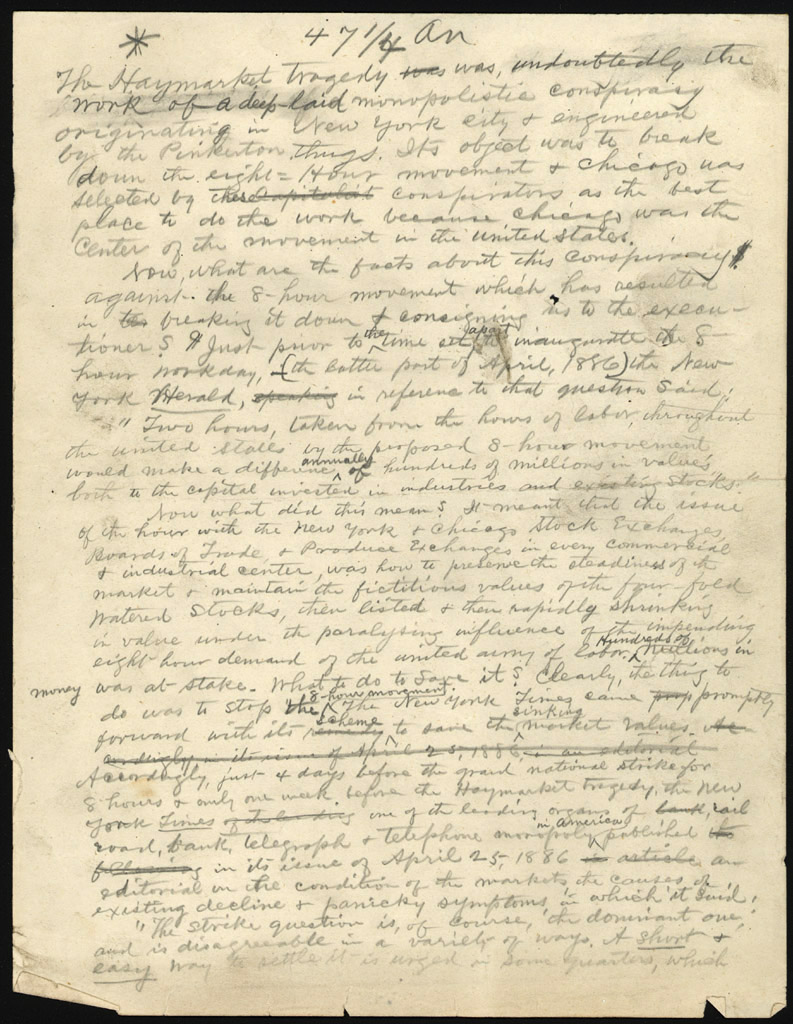 * 47 1/4 an
The Haymarket tragedy was was, undoubtedly the
work of a deep-laid monopolistic conspiracy
originating in New York city & engineered
by the Pinkerton thugs. Its object was to break
down the eight=Hour movement & Chicago was
selected by these capitalist conspirators as the best
place to do the work because Chicago was the
Center of the movement in the united states.
Now, what are the facts about this conspiracy
against the 8-hour movement which has resulted
in breaking it down & consigning us to the execu-
tioner? Just prior to the time set apart to inaugurate the 8-
hour workday, (the latter part of April, 1886) the New
York Herald, speaking in reference to that question said:
"Two hours, taken from the hours of labor, throughout
the united states by the proposed 8-hour movement
would make a difference annually of hundreds of millions in values
both to the capital invested in industries and existing stocks."
Now what did this mean? It meant that the issue
of the hour with the New York & Chicago Stock Exchanges,
Boards of Trade, & Produce Exchanges in every commercial
& industrial center, was how to preserve the steadiness of the
market & maintain the fictitious values of the four-fold
watered stocks, then listed & then rapidly shrinking
in value under the paralysing influence of the impending
eight-hour demand of the united army of labor. Hundreds of Millions in
money was at stake. What to do to save it? Clearly, the thing to
do was to stop the 8-hour movement. The New York Times came prop promptly
forward with its remedy scheme to save the sinking market values. Ac-
cordingly, in its issue of April 25, 1886, in an editorial
Accordingly, just 4 days before the grand national strike for
8 hours & only one week before the Haymarket tragedy, the New
York Times of its leading one of the leading organs of bank, rail
road, bank, telegraph & telephone monopoly in America, published its
following in its issue of April 25, 1886 article an
editorial on the condition of the markets, the causes of
existing decline & panicky symptoms in which it said:
"The strike question is, of course, the dominant one,
and is disagreeable in a variety of ways. A short &
easy way to settle it is urged in some quarters, which